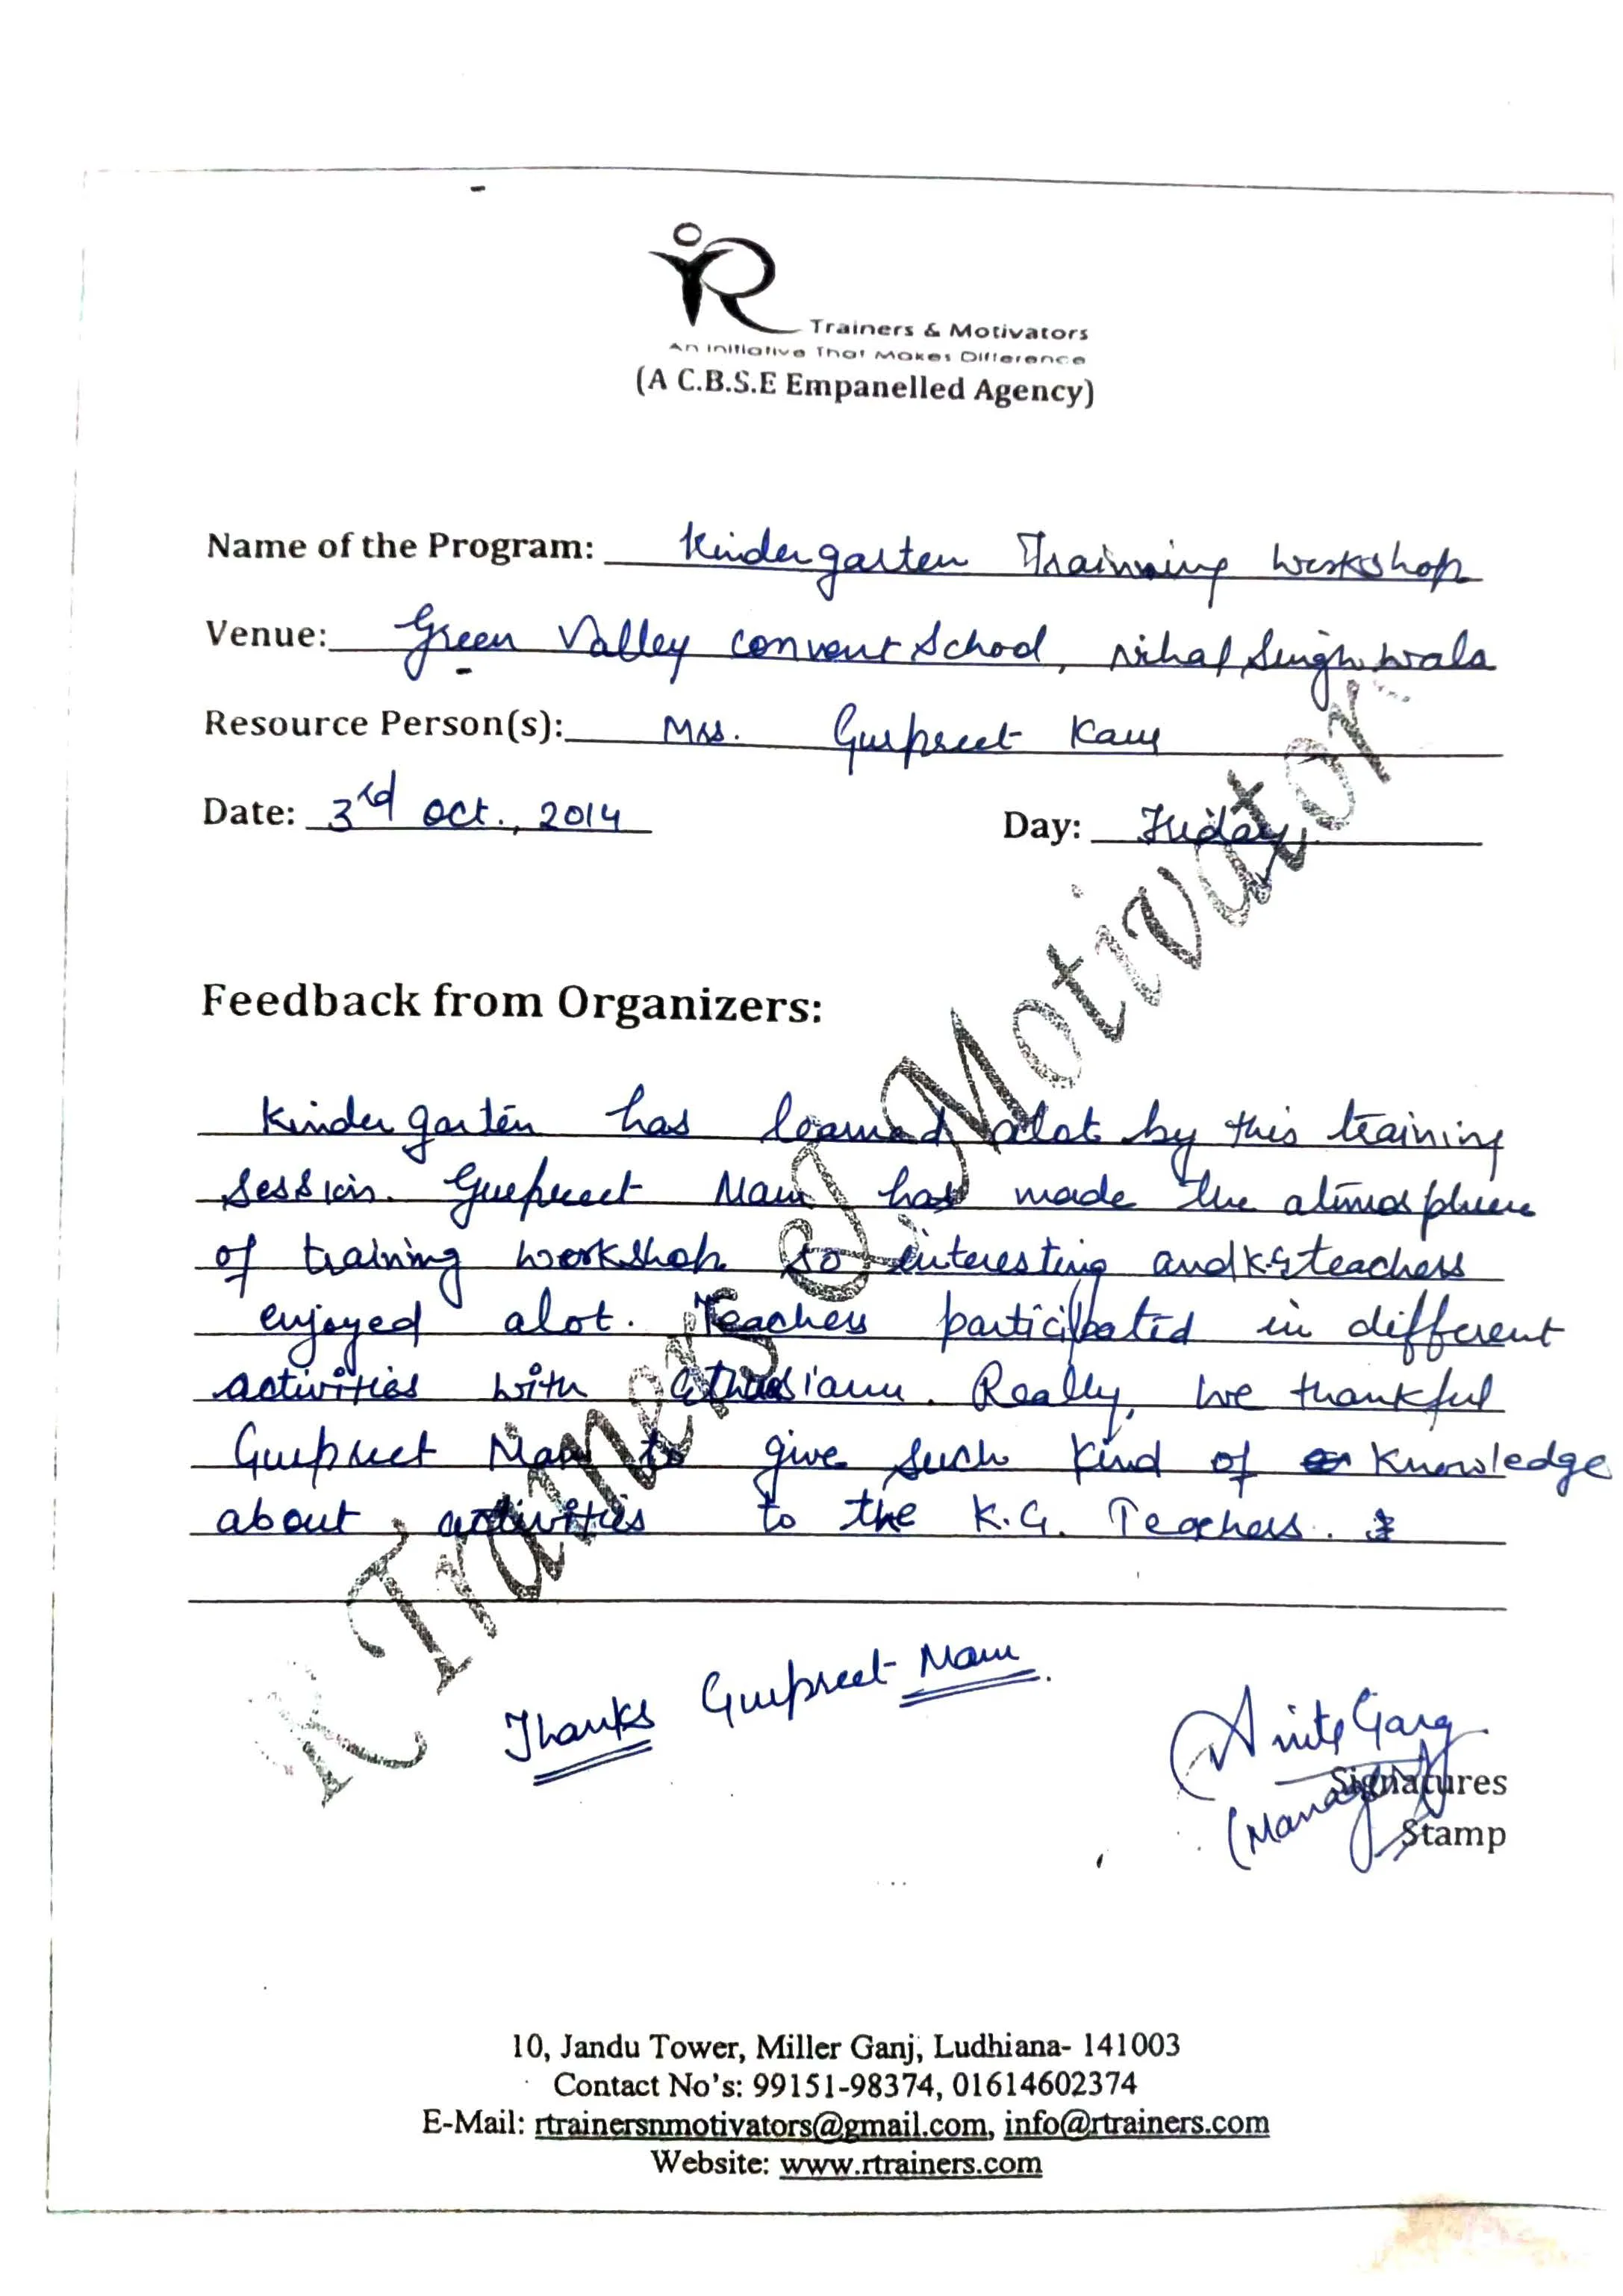 R
Trainers & Motivators
An Initiative That Makes Difference
(A C.B.S.E Empanelled Agency)
Name of the Program: Kindergarten Training workshop
Venue: Green Valley convent School, Nihal Singh wala
Resource Person(s): Mrs. Gurpreet Kaur
Date: 3rd Oct., 2014 Day: Friday
Feedback from Organizers:
Kindergarten has learned alot by this training
session. Gurpreet Mam has made the atmosphere
of training workshop so interesting and K.G teachers
enjoyed alot. Teachers participated in different
activities with Really, we thankful
Gurpreet Mam to give such kind of knowledge
about activities to the K.G. Teachers.
Thanks Gurpreet Mam.
Anita Garg
Signatures
(Manager)
Stamp
R Trainers & Motivators
10, Jandu Tower, Miller Ganj, Ludhiana- 141003
Contact No's: 99151-98374, 01614602374
E-Mail: rtrainersnmotivators@gmail.com, info@rtrainers.com
Website: www.rtrainers.com